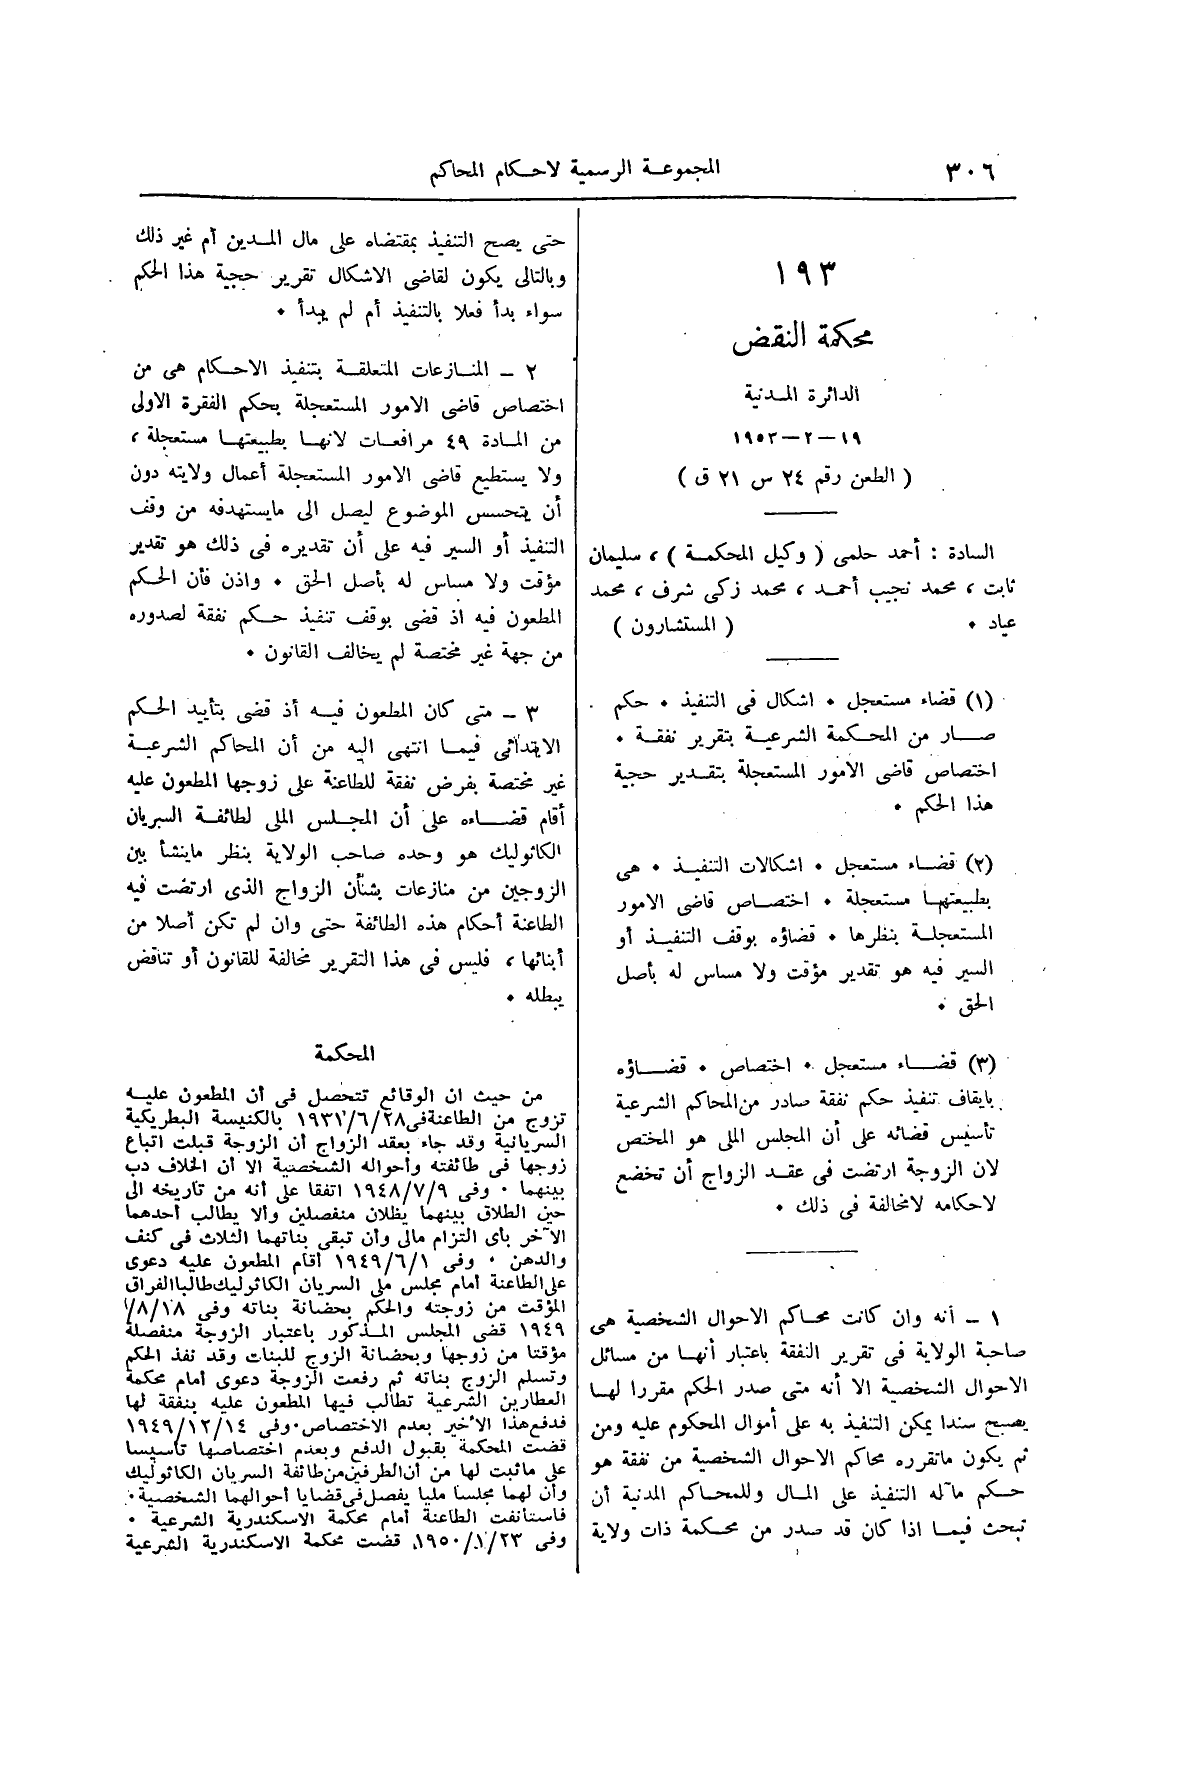 ٣٠٦
المجموعة الرسمية لاحكام المحاكم
١٩٣
محكمة النقض
الدائرة المدنية
١٩ – ٢ – ١٩٥٣
( الطعن رقم ٢٤ س ٢١ ق )
السادة : أحمد حلمى ( وكيل المحكمة ) ، سليمان
ثابت ، محمد نجيب أحمد ، محمد زكى شرف ، محمد
عياد • ( المستشارون )
(١) قضاء مستعجل • اشكال فى التنفيذ • حكم
صادر من المحكمة الشرعية بتقرير نفقة •
اختصاص قاضى الامور المستعجلة بتقدير حجية
هذا الحكم •
(٢) قضاء مستعجل • اشكالات التنفيذ • هى
بطبيعتها مستعجلة • اختصاص قاضى الامور
المستعجلة بنظرها • قضاؤه بوقف التنفيذ أو
السير فيه هو تقدير مؤقت ولا مساس له بأصل
الحق •
(٣) قضاء مستعجل • اختصاص • قضاؤه
بايقاف تنفيذ حكم نفقة صادر من المحاكم الشرعية
تأسيس قضائه على أن المجلس الملى هو المختص
لان الزوجة ارتضت فى عقد الزواج أن تخضع
لاحكامه لامخالفة فى ذلك •
١ – أنه وان كانت محاكم الاحوال الشخصية هى
صاحبة الولاية فى تقرير النفقة باعتبار أنها من مسائل
الاحوال الشخصية الا أنه متى صدر الحكم مقررا لها
يصبح سندا يمكن التنفيذ به على أموال المحكوم عليه ومن
ثم يكون ماتقرره محاكم الاحوال الشخصية من نفقة هو
حكم مآله التنفيذ على المال وللمحاكم المدنية أن
تبحث فيما اذا كان قد صدر من محكمة ذات ولاية
حتى يصح التنفيذ بمقتضاه على مال المدين أم غير ذلك
وبالتالى يكون لقاضى الاشكال تقرير حجية هذا الحكم
سواء بدأ فعلا بالتنفيذ أم لم يبدأ •
٢ – المنازعات المتعلقة بتنفيذ الاحكام هى من
اختصاص قاضى الامور المستعجلة بحكم الفقرة الاولى
من المادة ٤٩ مرافعات لانها بطبيعتها مستعجلة ،
ولا يستطيع قاضى الامور المستعجلة أعمال ولايته دون
أن يتحسس الموضوع ليصل الى مايستهدفه من وقف
التنفيذ أو السير فيه على أن تقديره فى ذلك هو تقدير
مؤقت ولا مساس له بأصل الحق • واذن فأن الحكم
المطعون فيه اذ قضى بوقف تنفيذ حكم نفقة لصدوره
من جهة غير مختصة لم يخالف القانون •
٣ – متى كان المطعون فيه أذ قضى بتأييد الحكم
الابتدائى فيما انتهى اليه من أن المحاكم الشرعية
غير مختصة بفرض نفقة للطاعنة على زوجها المطعون عليه
أقام قضاءه على أن المجلس الملى لطائفة السريان
الكاثوليك هو وحده صاحب الولاية بنظر ماينشأ بين
الزوجين من منازعات بشأن الزواج الذى ارتضت فيه
الطاعنة أحكام هذه الطائفة حتى وان لم تكن أصلا من
أبنائها ، فليس فى هذا التقرير مخالفة للقانون أو تناقض
يبطله •
المحكمة
من حيث ان الوقائع تتحصل فى أن المطعون عليه
تزوج من الطاعنة فى ١٩٣١/٦/٢٨ بالكنيسة البطريكية
السريانية وقد جاء بعقد الزواج أن الزوجة قبلت اتباع
زوجها فى طائفته وأحواله الشخصية الا أن الخلاف دب
بينهما • وفى ١٩٤٨/٧/٩ اتفقا على أنه من تاريخه الى
حين الطلاق بينهما يظلان منفصلين وألا يطالب أحدهما
الآخر بأى التزام مالى وأن تبقى بناتهما الثلاث فى كنف
والدهن • وفى ١٩٤٩/٦/١ أقام المطعون عليه دعوى
على الطاعنة أمام مجلس ملى السريان الكاثوليك طالبا الفراق
المؤقت من زوجته والحكم بحضانة بناته وفى ٨/١٨/
١٩٤٩ قضى المجلس المذكور باعتبار الزوجة منفصلة
مؤقتا من زوجها وبحضانة الزوج للبنات وقد نفذ الحكم
وتسلم الزوج بناته ثم رفعت الزوجة دعوى أمام محكمة
العطارين الشرعية تطالب فيها المطعون عليه بنفقة لها
فدفع هذا الأخير بعدم الاختصاص • وفى ١٩٤٩/١٢/١٤
قضت المحكمة بقبول الدفع وبعدم اختصاصها تأسيسا
على ماثبت لها من أن الطرفين من طائفة السريان الكاثوليك
وأن لهما مجلسا مليا يفصل فى قضايا أحوالهما الشخصية •
فاستأنفت الطاعنة أمام محكمة الاسكندرية الشرعية •
وفى ١٩٥٠/١/٢٣ قضت محكمة الاسكندرية الشرعية